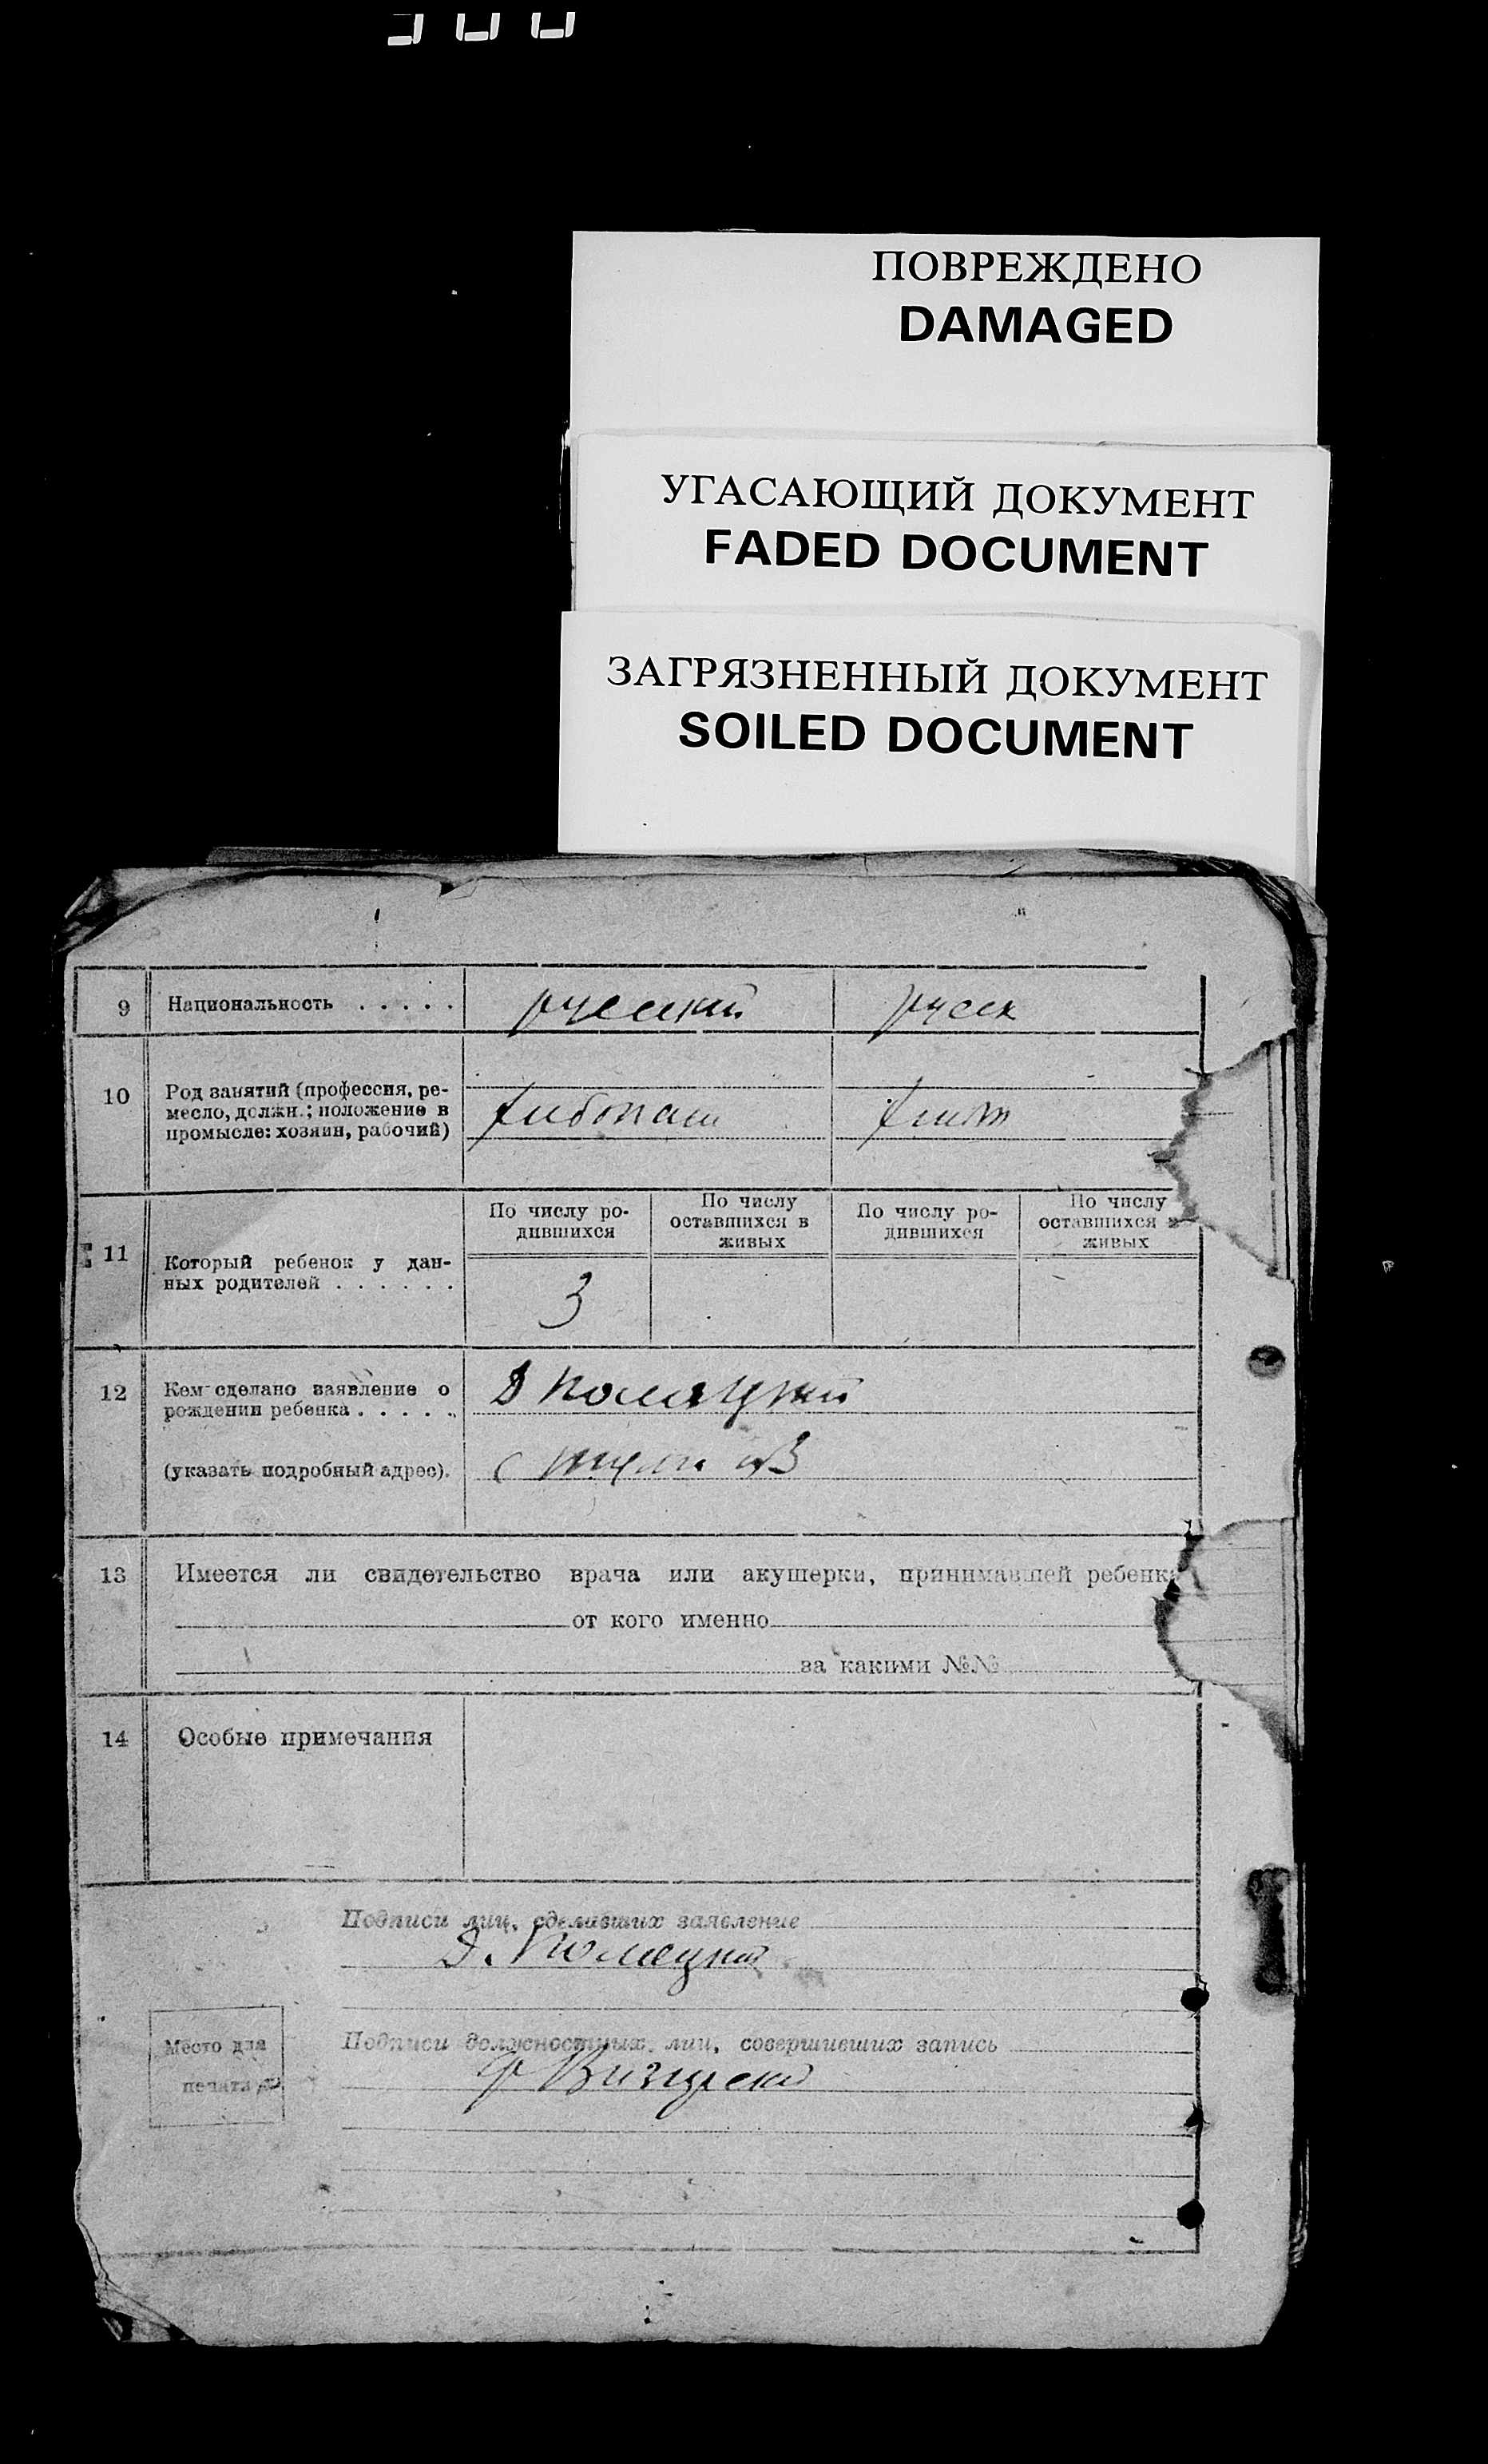 ПОВРЕЖДЕНО
DAMAGED
УГАСАЮЩИЙ ДОКУМЕНТ
FADED DOCUMENT
ЗАГРЯЗНЕННЫЙ ДОКУМЕНТ
SOILED DOCUMENT
9 Национальность . . . . . русский русск
10 Род занятий (профессия, ре-
месло, должн.; положение в
промысле: хозяин, рабочий)
По числу ро-
дившихся
По числу
оставшихся в
живых
По числу ро-
дившихся
По числу
оставшихся в
живых
11 Который ребенок у дан-
ных родителей . . . . . .
3
12 Кем сделано заявление о
рождении ребенка . . . . .
Д
(указать подробный адрес).
с
13 Имеется ли свидетельство врача или акушерки, принимавшей ребенка
от кого именно
за какими №№
14 Особые примечания
Подписи лиц, сделавших заявление
Д.
Подписи должностных лиц, совершивших запись
Место для
печати